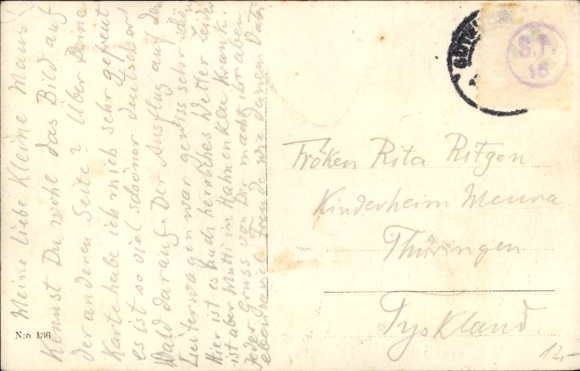 Meine liebe kleine Maus
Kennst Du wohl das Bild auf
der anderen Seite? Über Deine
Karte habe ich mich sehr gefreut
es ist so viel schöner deutscher
Wald darauf. Der Ausflug auf dem
Leiterwagen war gewiss sehr schön
Hier ist es auch herrliches Wetter leider
ist aber Mutti im krank.
Jeder Gruss von Dir macht ihr aber
ebenso viel Freude wie Deinem Vati
S.F.
15
Fröken Rita Ritgen
Kinderheim Meura
Thüringen
Tyskland
N:o 136
12,-